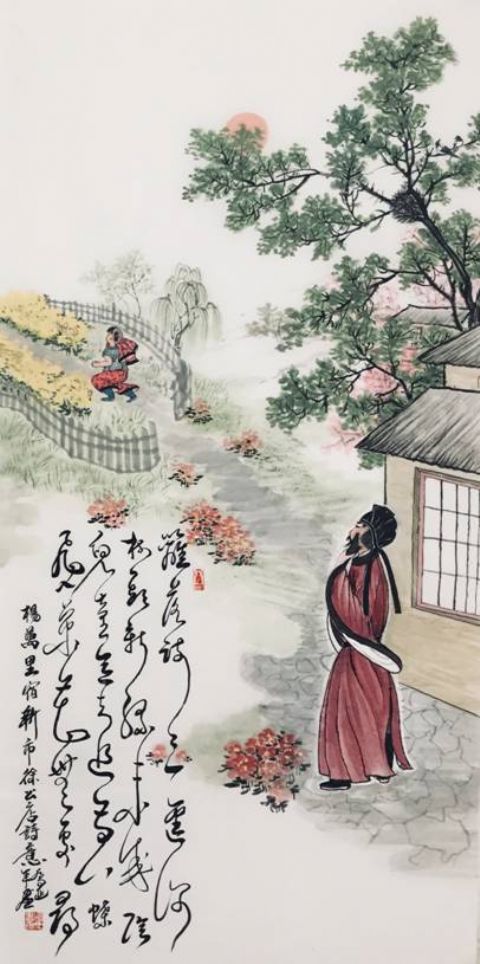 籬落疎々一逕深
樹頭新綠未成陰
兒童急走追黃蝶
飛入菜花無處尋
楊萬里宿新市徐公店詩意